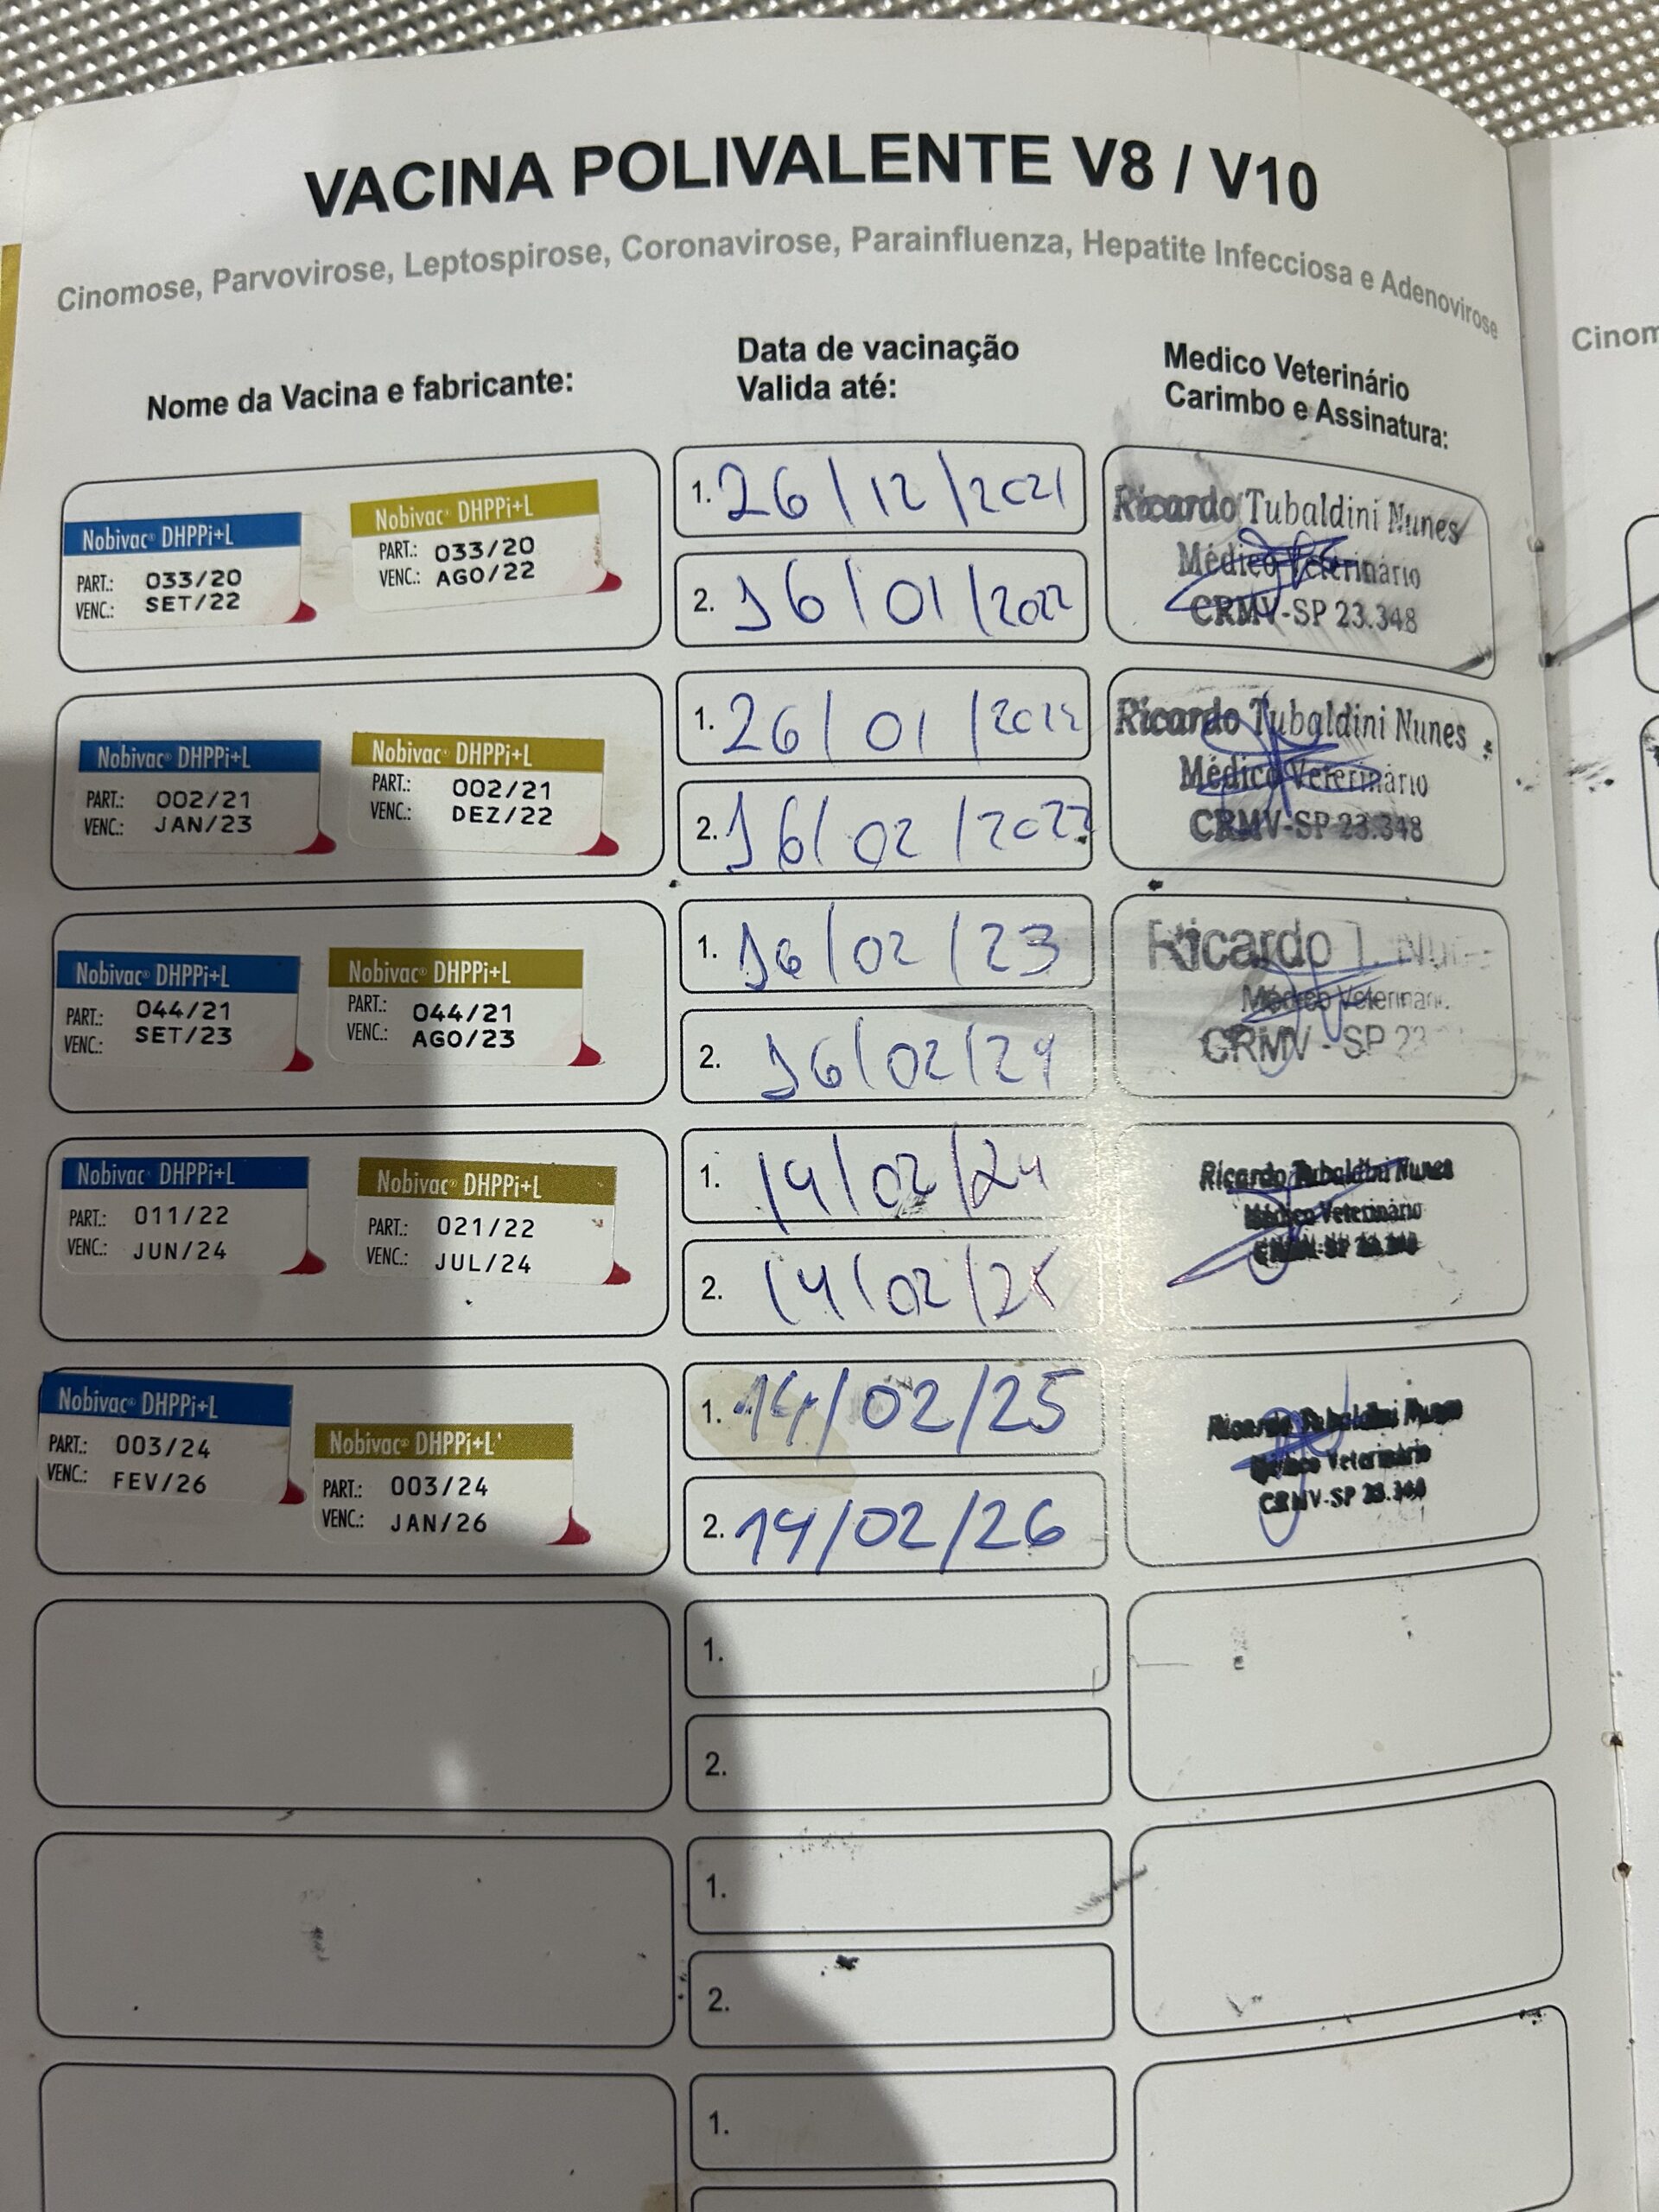 VACINA POLIVALENTE V8 / V10
Cinomose, Parvovirose, Leptospirose, Coronavirose, Parainfluenza, Hepatite Infecciosa e Adenovirose
Nome da Vacina e fabricante:
Data de vacinação
Valida até:
Medico Veterinário
Carimbo e Assinatura:
Nobivac® DHPPi+L
PART.: 033/20
VENC.: SET/22
Nobivac® DHPPi+L
PART.: 033/20
VENC.: AGO/22
1. 26/12/2021
2. 16/01/2022
Ricardo Tubaldini Nunes
Médico Veterinário
CRMV-SP 23.348
Nobivac® DHPPi+L
PART.: 002/21
VENC.: JAN/23
Nobivac® DHPPi+L
PART.: 002/21
VENC.: DEZ/22
1. 26/01/2022
2. 16/02/2023
Ricardo Tubaldini Nunes
Médico Veterinário
CRMV-SP 23.348
Nobivac® DHPPi+L
PART.: 044/21
VENC.: SET/23
Nobivac® DHPPi+L
PART.: 044/21
VENC.: AGO/23
1. 16/02/23
2. 16/02/24
Ricardo T. Nunes
Médico Veterinári
CRMV - SP 23
Nobivac® DHPPi+L
PART.: 011/22
VENC.: JUN/24
Nobivac® DHPPi+L
PART.: 021/22
VENC.: JUL/24
1. 14/02/24
2. 14/02/25
Ricardo Tubaldini Nunes
Médico Veterinário
CRMV-SP 23.348
Nobivac® DHPPi+L
PART.: 003/24
VENC.: FEV/26
Nobivac® DHPPi+L
PART.: 003/24
VENC.: JAN/26
1. 14/02/25
2. 14/02/26
Ricardo Tubaldini Nunes
Médico Veterinário
CRMV-SP 23.348
1.
2.
1.
2.
1.
Cinom